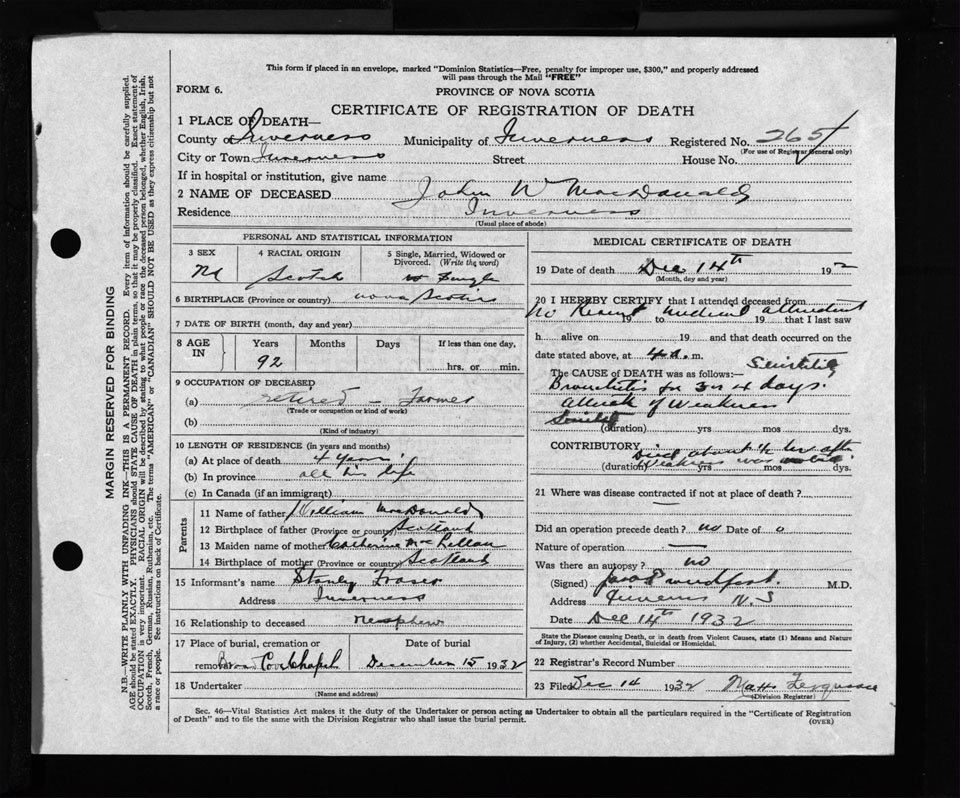 This form if placed in an envelope, marked "Dominion Statistics—Free, penalty for improper use, $300," and properly addressed
will pass through the Mail "FREE"
FORM 6.
PROVINCE OF NOVA SCOTIA
CERTIFICATE OF REGISTRATION OF DEATH
1 PLACE OF DEATH—
County of Inverness Municipality of Inverness Registered No. 265
(For use of Registrar General only)
City or Town Inverness Street House No.
If in hospital or institution, give name
2 NAME OF DECEASED John W MacDonald
Residence Inverness
(Usual place of abode)
PERSONAL AND STATISTICAL INFORMATION
3 SEX 4 RACIAL ORIGIN 5 Single, Married, Widowed or Divorced. (Write the word)
M Scotch Single
6 BIRTHPLACE (Province or country) Nova Scotia
7 DATE OF BIRTH (month, day and year)
8 AGE IN Years Months Days If less than one day,
92 hrs. or min.
9 OCCUPATION OF DECEASED
(a) retired – Farmer
(Trade or occupation or kind of work)
(b)
(Kind of industry)
10 LENGTH OF RESIDENCE (in years and months)
(a) At place of death 4 years
(b) In province all his life
(c) In Canada (if an immigrant)
Parents
11 Name of father William MacDonald
12 Birthplace of father (Province or country) Scotland
13 Maiden name of mother Catherine McLellan
14 Birthplace of mother (Province or country) Scotland
15 Informant's name Stanley Fraser
Address Inverness
16 Relationship to deceased nephew
17 Place of burial, cremation or Date of burial
removal Broad Cove Chapel December 15 1932
18 Undertaker
(Name and address)
MEDICAL CERTIFICATE OF DEATH
19 Date of death Dec 14th 192
(Month, day and year)
20 I HEREBY CERTIFY that I attended deceased from
No Recent medical attendant
19 to 19 that I last saw
h alive on 19 and that death occurred on the
date stated above, at 4 a. m.
Senility
The CAUSE of DEATH was as follows:—
Bronchitis for 3 or 4 days.
Attack of Weakness
(duration) yrs mos dys.
CONTRIBUTORY Died about ½ hr after
(duration) weakness was yrs mos dys.
21 Where was disease contracted if not at place of death?
Did an operation precede death? no Date of 0
Nature of operation —
Was there an autopsy? no
(Signed) M.D.
Address Inverness N.S
Date Dec 14th 1932
State the Disease causing Death, or in death from Violent Causes, state (1) Means and Nature
of Injury, (2) whether Accidental, Suicidal or Homicidal.
22 Registrar's Record Number
23 Filed Dec 14 1932
(Division Registrar)
Sec. 46—Vital Statistics Act makes it the duty of the Undertaker or person acting as Undertaker to obtain all the particulars required in the "Certificate of Registration
of Death" and to file the same with the Division Registrar who shall issue the burial permit.
(OVER)
MARGIN RESERVED FOR BINDING
N.B.—WRITE PLAINLY WITH UNFADING INK—THIS IS A PERMANENT RECORD. Every item of information should be carefully supplied.
AGE should be stated EXACTLY. PHYSICIANS should STATE CAUSE OF DEATH in plain terms, so that it may be properly classified. Exact statement of
OCCUPATION is very important. RACIAL ORIGIN will be described by stating to what people or race the deceased person belonged, whether English, Irish,
Scotch, French, German, Russian, Ruthenian, etc. The terms "AMERICAN" or "CANADIAN" SHOULD NOT BE USED as they express citizenship but not
a race or people. See instructions on back of Certificate.